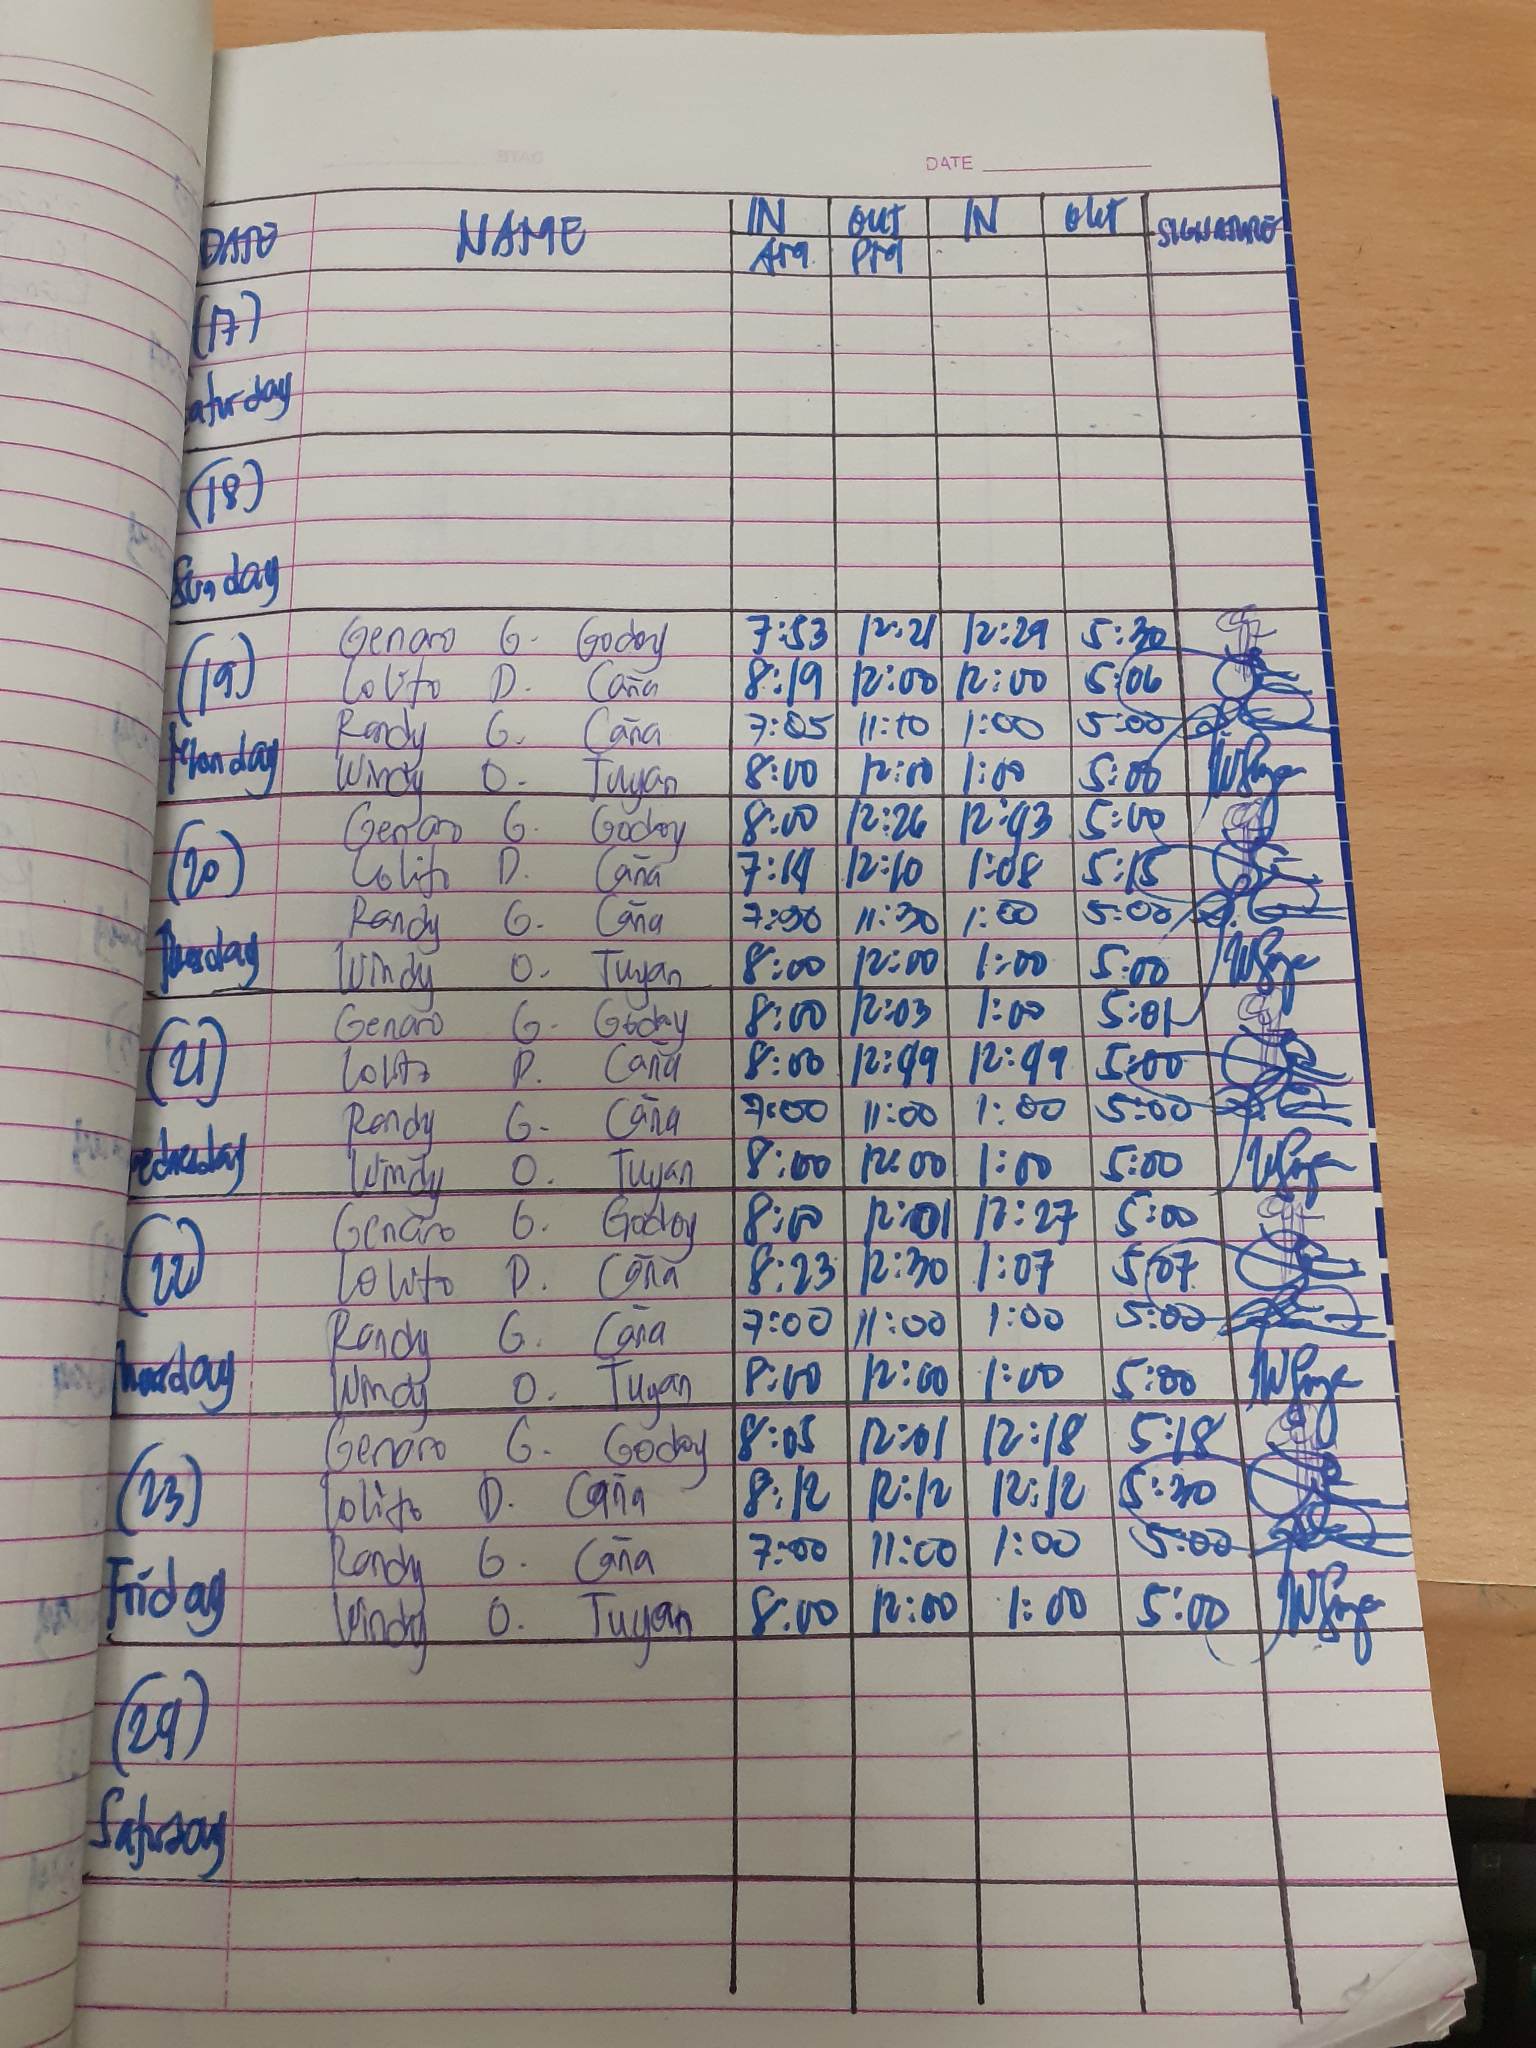 DATE
DATE NAME IN OUT IN OUT SIGNATURE
AM PM
(17)
Saturday
(18)
Sunday
(19)
Genaro G. Godoy 7:53 12:21 12:29 5:30
Lolito D. Caña 8:19 12:00 12:00 5:06
Randy G. Caña 7:05 11:10 1:00 5:00
Monday
Windy O. Tuyan 8:00 12:00 1:00 5:00
Genaro G. Godoy 8:00 12:26 12:43 5:00
(20)
Lolito D. Caña 7:14 12:10 1:08 5:15
Randy G. Caña 11:30 1:00 5:00
Tuesday
Windy O. Tuyan 8:00 12:00 1:00 5:00
Genaro G. Godoy 8:00 12:03 1:00 5:01
(21)
Lolito D. Caña 8:00 12:49 12:49 5:00
Randy G. Caña 7:00 11:00 1:00 5:00
Wednesday
Windy O. Tuyan 8:00 12:00 1:00 5:00
Genaro G. Godoy 8:00 12:01 12:27 5:00
(22)
Lolito D. Caña 8:23 12:30 1:07 5:07
Randy G. Caña 7:00 11:00 1:00 5:00
Windy O. Tuyan 8:00 12:00 1:00 5:00
Genaro G. Godoy 8:05 12:01 12:18 5:18
(23)
Lolito D. Caña 8:12 12:12 12:12 5:30
Randy G. Caña 7:00 11:00 1:00 5:00
Friday
Windy O. Tuyan 8:00 12:00 1:00 5:00
(24)
Saturday